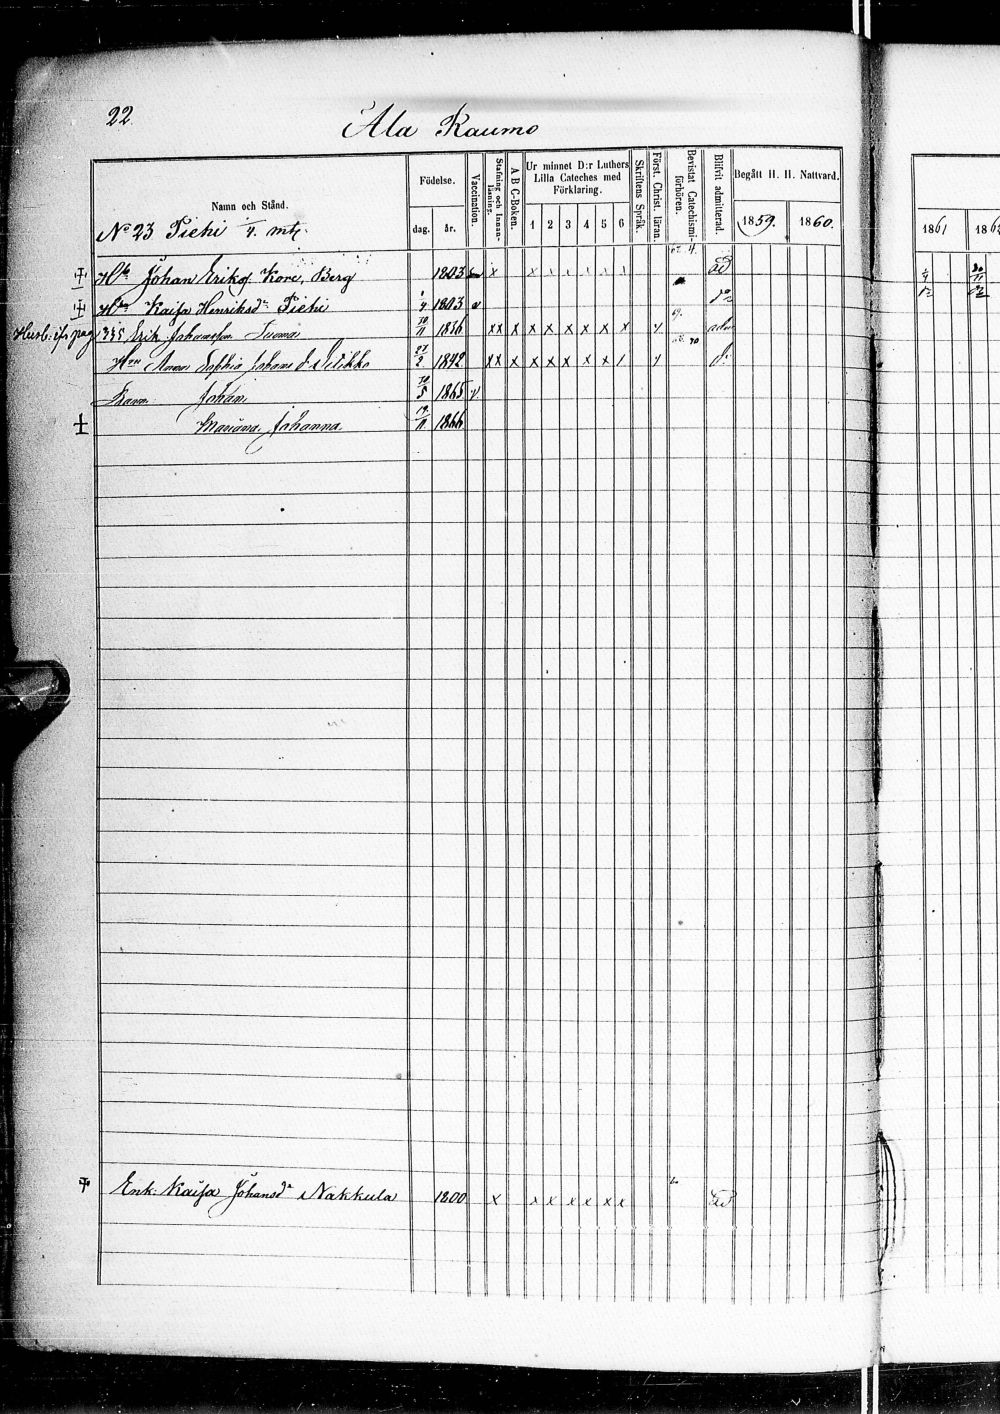 22.
Ala Raumo
Namn och Stånd.
Födelse.
dag.
år.
Vaccination.
Stafning och Innan-läsning.
A B C-Boken.
Ur minnet D:r Luthers
Lilla Cateches med
Förklaring.
1 2 3 4 5 6
Skriftens Språk.
Först. Christ. läran.
Bevistat Catechismi-förhören.
Blifvit admitterad.
Begått H. H. Nattvard.
1859. 1860.
1861 186
No 23 Piehi 1/4 mtl.
Johan Eriksf. Kore, Berg 1803 x
Kaisa Henriksdr Piehi 4 1803
335 Erik Johansson 30/11 1836 x x x x x x x x x
Hu Anna Sophia Johans d. 27/2 1842 x x x x x x x x
Barn Johan 5 1865
Mariana Johanna 19/11 1866
Enk. Kaisa Johansdr Nakkula 1800 x x x x x x x